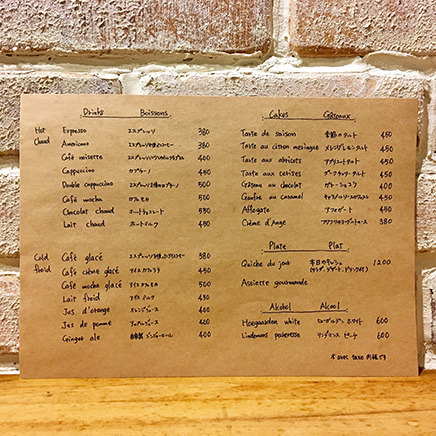 Drinks Boissons
Hot Espresso エスプレッソ 380
Chaud Americano 380
Café noisette 400
Cappuccino カプチーノ 450
Double cappuccino 500
Café mocha カフェモカ 500
Chocolat chaud ホットチョコレート 530
Lait chaud ホットミルク 450
Cold Café glacé 380
froid Café crème glacé アイスカフェラテ 450
Café mocha glacé アイスカフェモカ 500
Lait froid アイスミルク 430
Jus d'orange オレンジジュース 400
Jus de pomme アップルジュース 400
Ginger ale 自家製 ジンジャーエール 400
Cakes Gâteaux
Tarte de saison 季節のタルト 450
Tarte au citron meringue メレンゲレモンタルト 450
Tarte aux abricots アプリコットタルト 450
Tarte aux cerises ダークチェリータルト 450
Gâteau au chocolat ガトーショコラ 400
Gaufre au caramel 450
Affogato アフォガート 450
Crème d'Ange 380
Plate Plat
Quiche du jour 本日のキッシュ 1200
(サラダ、デザート、ドリンク付)
Assiette gourmande
Alcohol Alcool
Hoegaarden white ヒューガルデン ホワイト 600
Lindemans pecheresse リンデマンス ピーチ 600